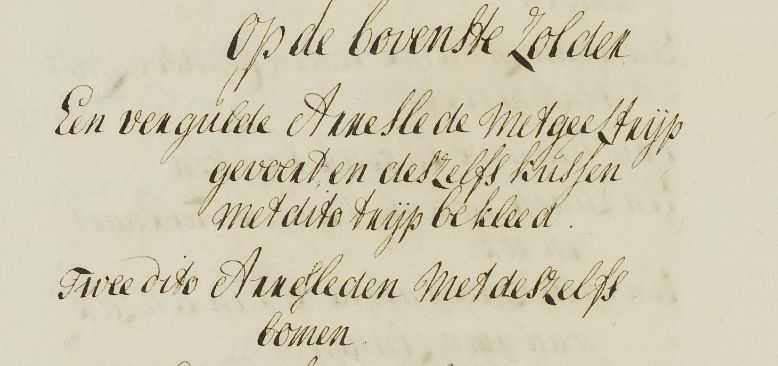 Op de bovenste Zolder
Een vergulde Arreslede Met geel trijp
gevoert, en deszelfs Kussen
Met dito trijp bekleed.
Twee dito Arresleden Met deszelfs
bomen.